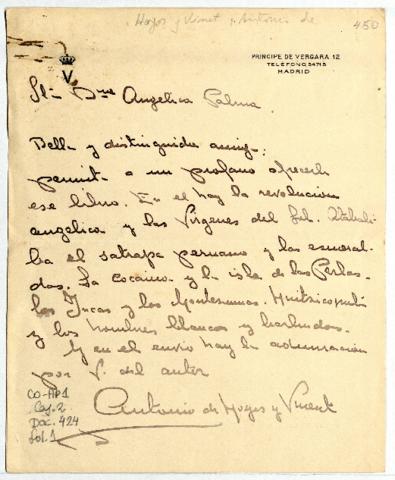 Hoyos y Vinent, Antonio de
450
V
PRINCIPE DE VERGARA 12
TELEFONO
MADRID
Angelica Palma
Bella y distinguida amiga:
permita a un profano ofrecerle
ese libro. En el hay la revolucion
angelica y las Virgenes del Sol. Atabali-
ba el satrapa peruano y las esmeral-
das. La cocaina y la isla de las Perlas.
los Incas y los Montezumas.
y los hombres blancos y barbudos.
Y en el envio hay la admiracion
por V. del autor
Antonio de Hoyos y Vinent
CO-AP1
Caj. 2
Doc. 424
fol. 1